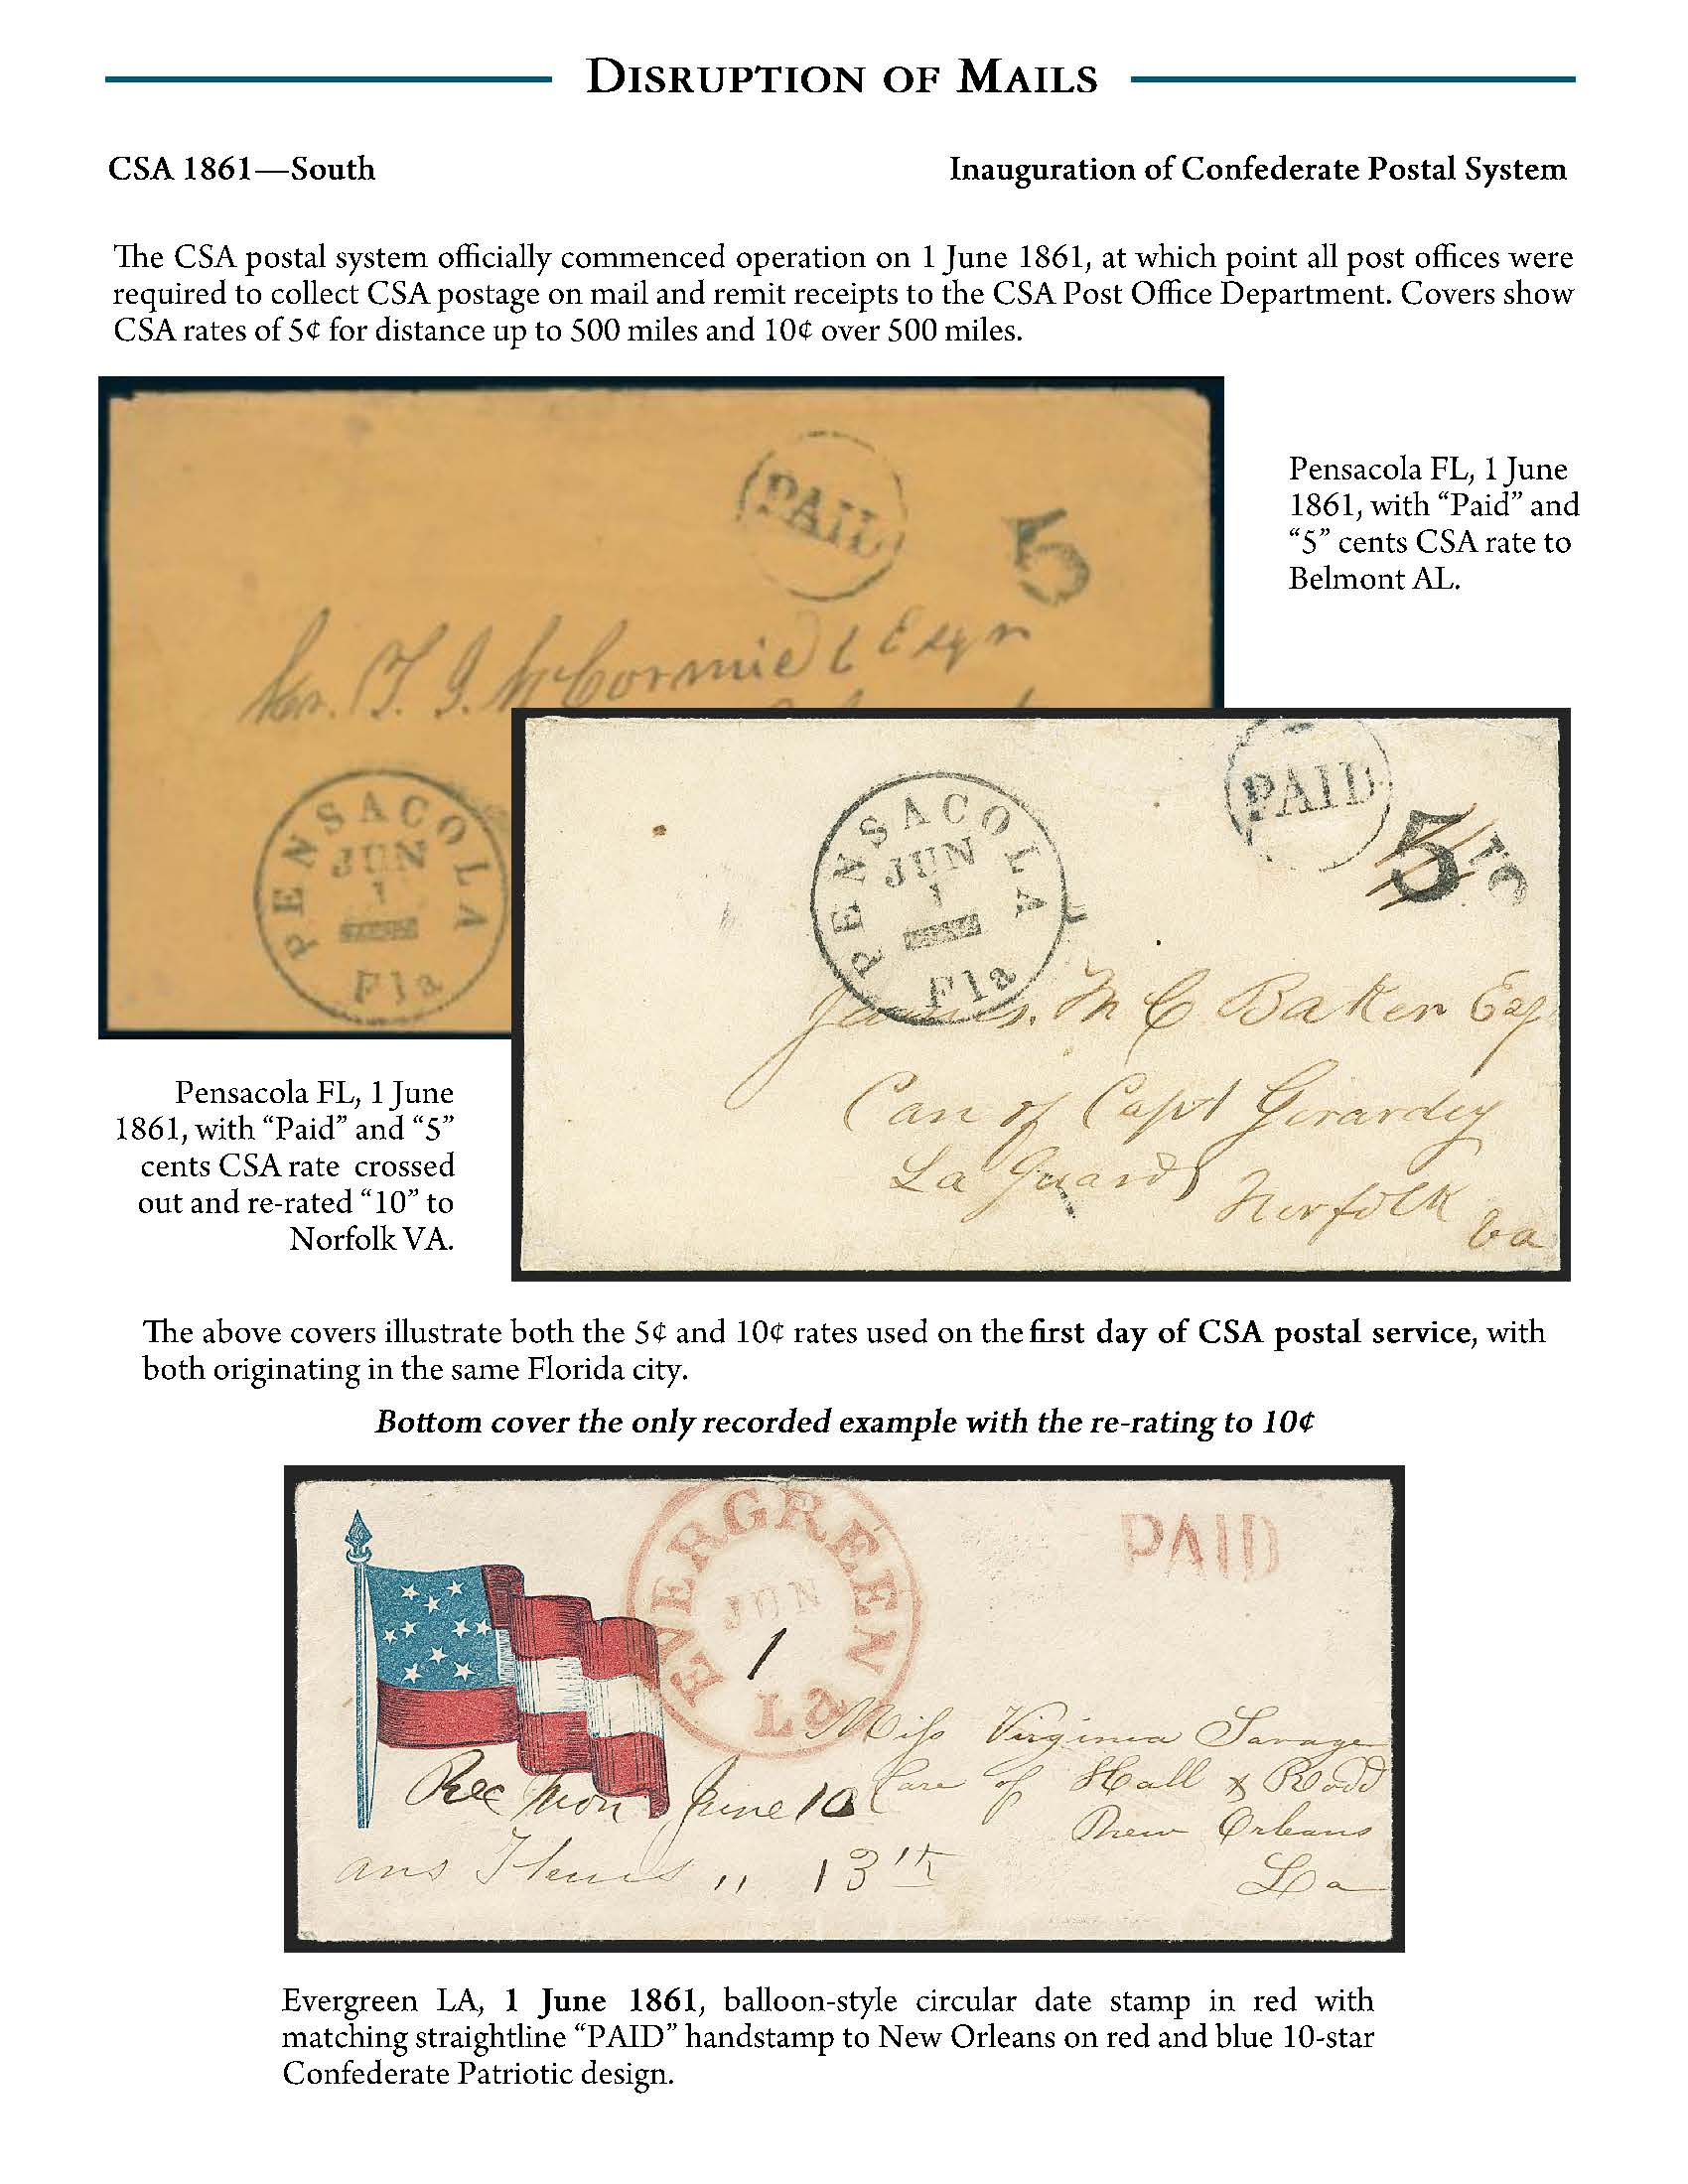 Disruption of Mails
CSA 1861—South
Inauguration of Confederate Postal System
The CSA postal system officially commenced operation on 1 June 1861, at which point all post offices were
required to collect CSA postage on mail and remit receipts to the CSA Post Office Department. Covers show
CSA rates of 5¢ for distance up to 500 miles and 10¢ over 500 miles.
PAID
5
T. J. McCormick Esqr
PENSACOLA
JUN
1
Fla
Pensacola FL, 1 June
1861, with “Paid” and
“5” cents CSA rate to
Belmont AL.
PAID
5 10
PENSACOLA
JUN
1
Fla
James. M C Baker Esq
Care of Capt Girardey
La Guards
Norfolk
Va
Pensacola FL, 1 June
1861, with “Paid” and “5”
cents CSA rate crossed
out and re-rated “10” to
Norfolk VA.
The above covers illustrate both the 5¢ and 10¢ rates used on the first day of CSA postal service, with
both originating in the same Florida city.
Bottom cover the only recorded example with the re-rating to 10¢
EVERGREEN
JUN
1
La
PAID
Miss Virginia Savage
Care of Hall & Rodd
New Orleans
La
Rec Mon June 10
ans Thurs " 13th
Evergreen LA, 1 June 1861, balloon-style circular date stamp in red with
matching straightline “PAID” handstamp to New Orleans on red and blue 10-star
Confederate Patriotic design.